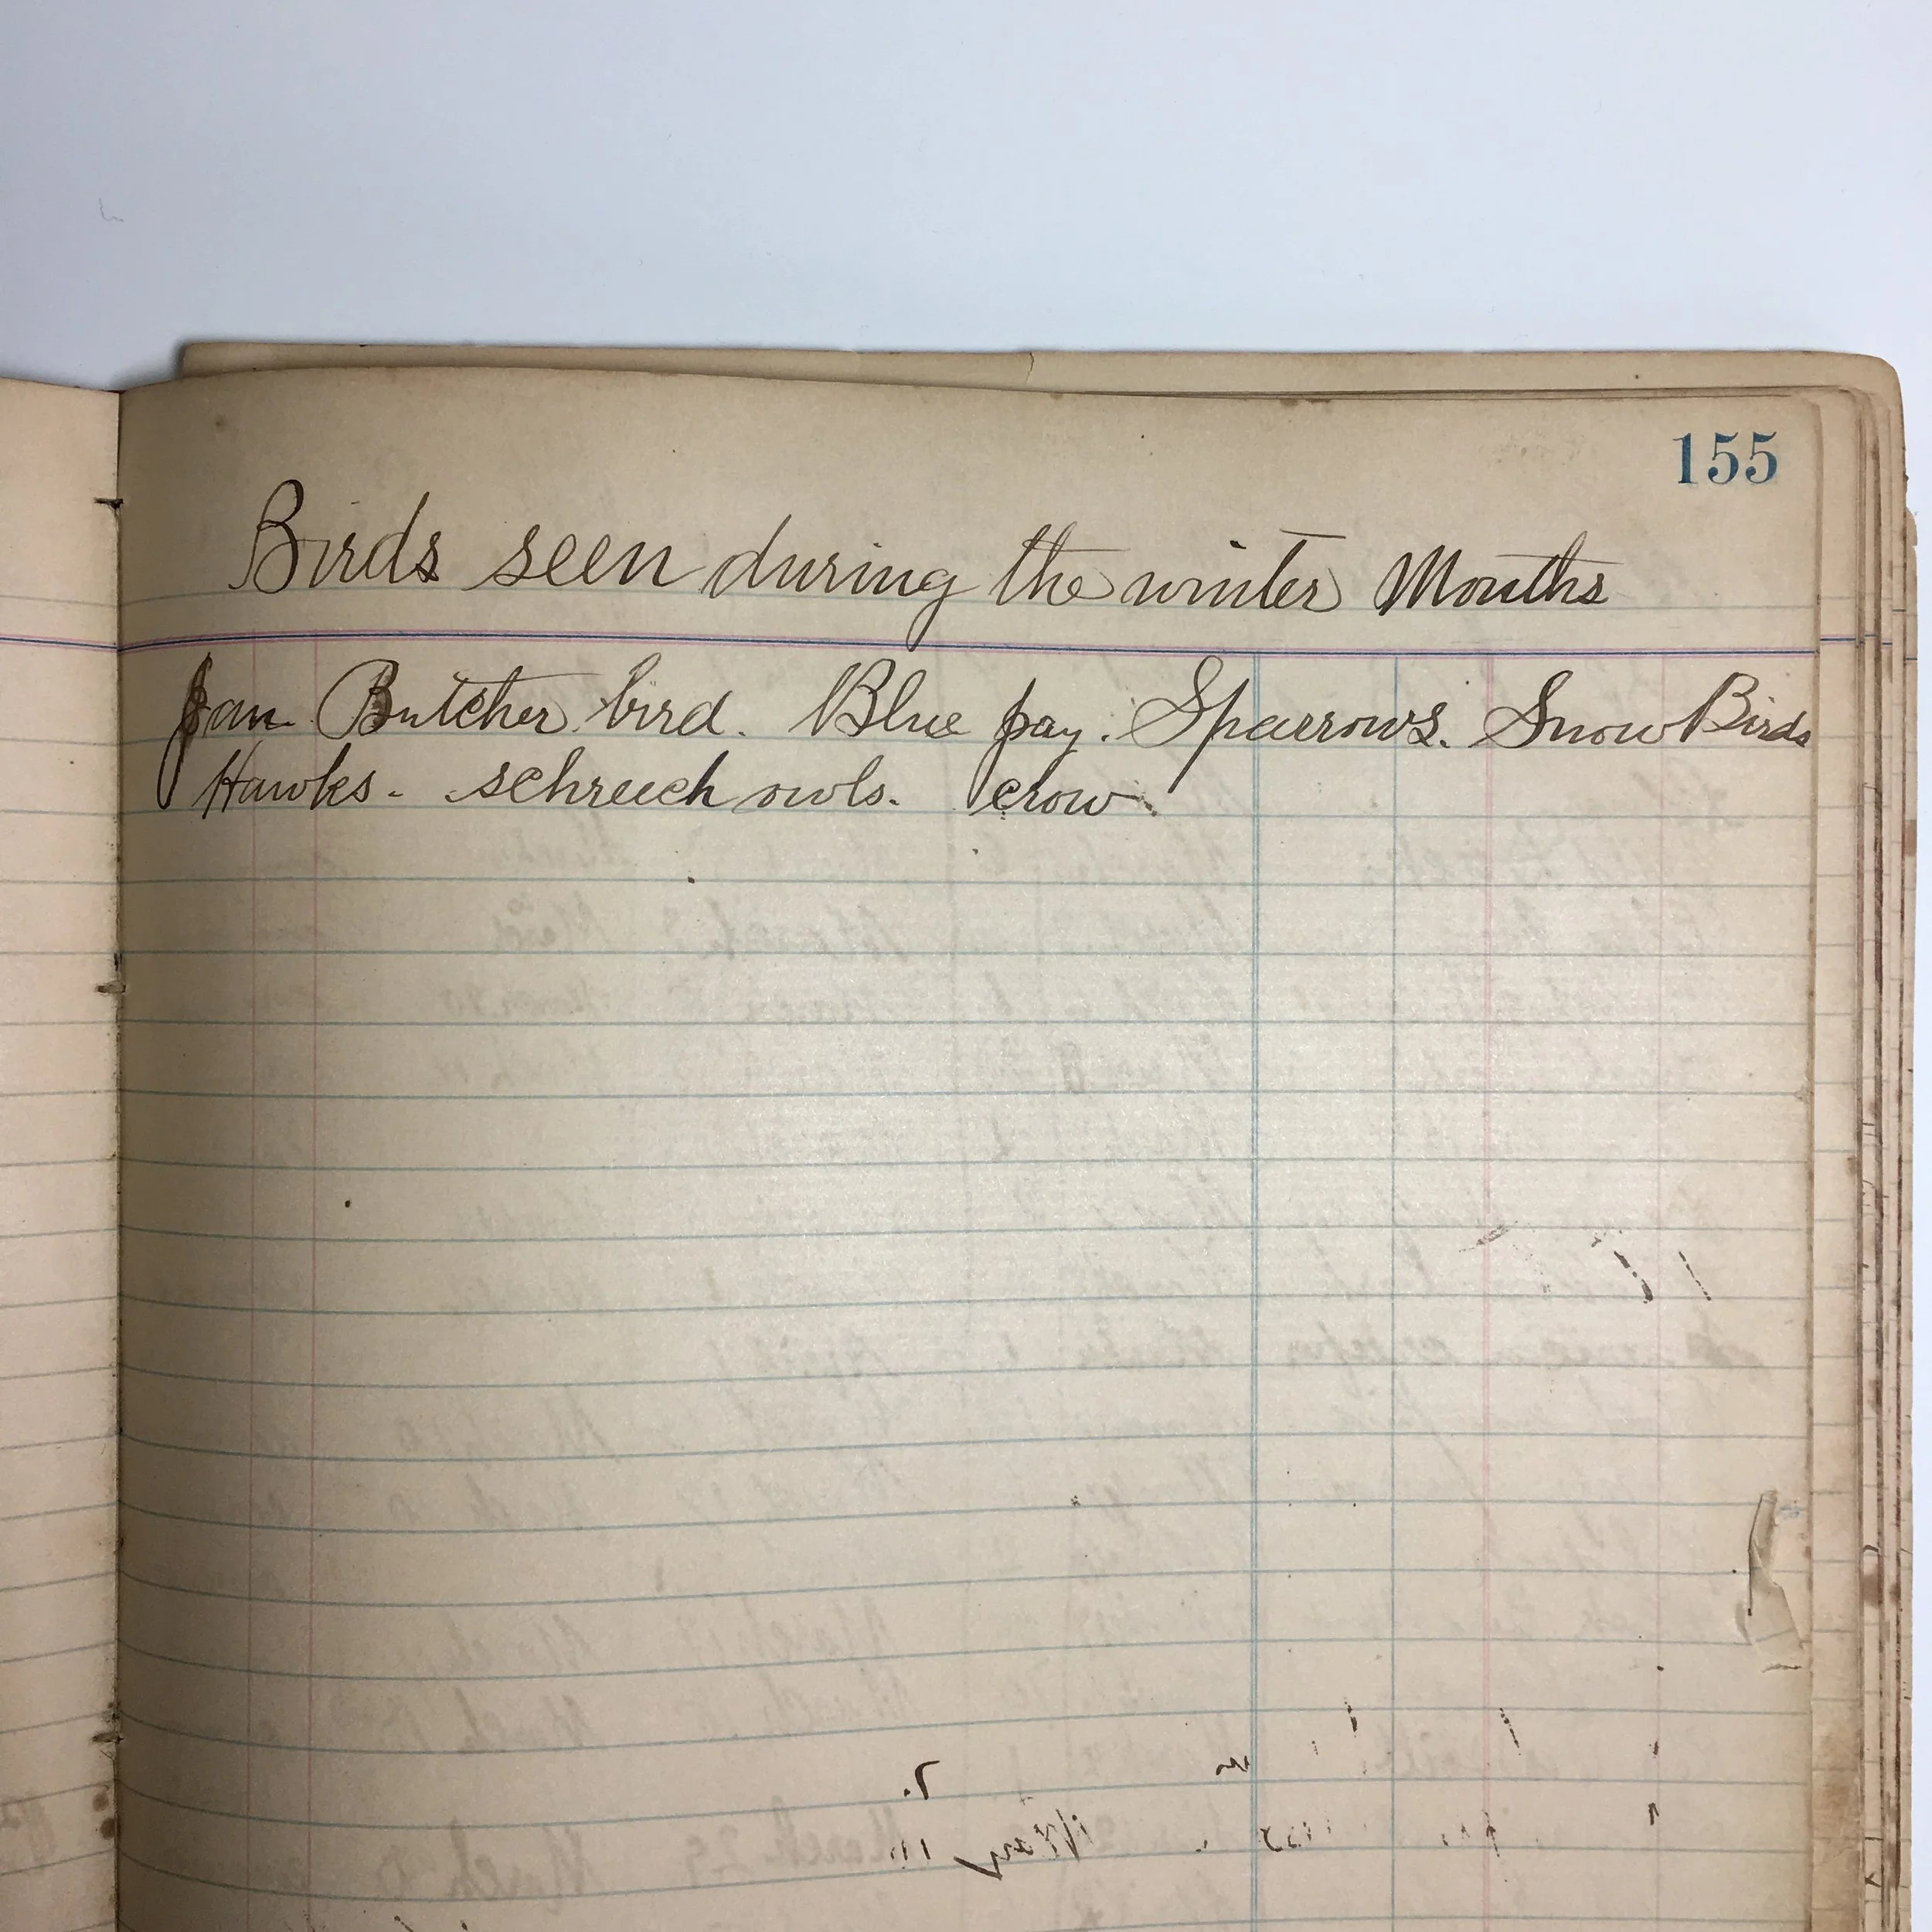 155
Birds seen during the winter Months
Jan Butcher bird. Blue Jay. Sparrows. Snow Birds
Hawks. schreech owls. crow.